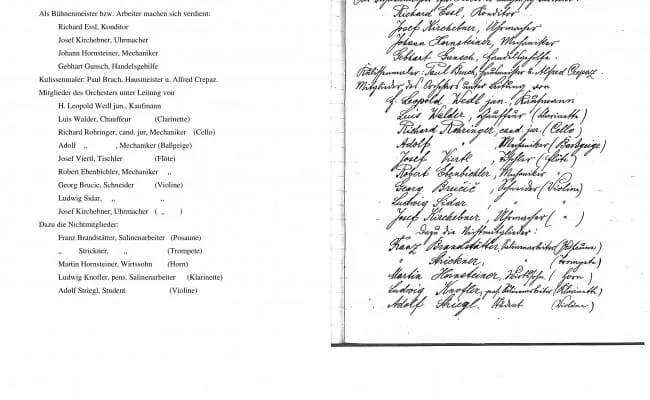 Als Bühnenmeister bzw. Arbeiter machen sich verdient:
Richard Essl, Konditor
Josef Kirchebner, Uhrmacher
Johann Hornsteiner, Mechaniker
Gebhart Gunsch, Handelsgehilfe
Kulissenmaler: Paul Bruch, Hausmeister u. Alfred Crepaz.
Mitglieder des Orchesters unter Leitung von
H. Leopold Wedl jun., Kaufmann
Luis Walder, Chauffeur (Clarinette)
Richard Rohringer, cand. jur, Mechaniker (Cello)
Adolf „ , Mechaniker (Baßgeige)
Josef Viertl, Tischler (Flöte)
Robert Ebenbichler, Mechaniker „
Georg Brucic, Schneider (Violine)
Ludwig Sidar, „ „
Josef Kirchebner, Uhrmacher ( „ )
Dazu die Nichtmitglieder:
Franz Brandstätter, Salinenarbeiter (Posaune)
„ Strickner, „ (Trompete)
Martin Hornsteiner, Wirtssohn (Horn)
Ludwig Knofler, pens. Salinenarbeiter (Klarinette)
Adolf Striegl, Student (Violine)
Richard Essl, Konditor
Josef Kirchebner, Uhrmacher
Johann Hornsteiner, Mechaniker
Gebhart Gunsch, Handelsgehilfe.
Kulissenmaler: Paul Bruch, Hausmeister u. Alfred Crepaz.
Mitglieder des Orchesters unter Leitung von
H. Leopold Wedl jun., Kaufmann
Luis Walder, Chauffür (Clarinette)
Richard Rohringer, cand. jur. (Cello)
Adolf " , Mechaniker (Bassgeige)
Josef Viertl, Tischler (Flöte)
Robert Ebenbichler, Mechaniker "
Georg Bručić, Schneider (Violine)
Ludwig Sidar, " "
Josef Kirchebner, Uhrmacher ( " )
Dazu die Nichtmitglieder:
Franz Brandstätter, Salinenarbeiter
" Strickner, " (Trompete)
Martin Hornsteiner, Wirtssohn (Horn)
Ludwig Knofler, pens. Salinenarbeiter (Klarinette)
Adolf Striegl, Student (Violine)